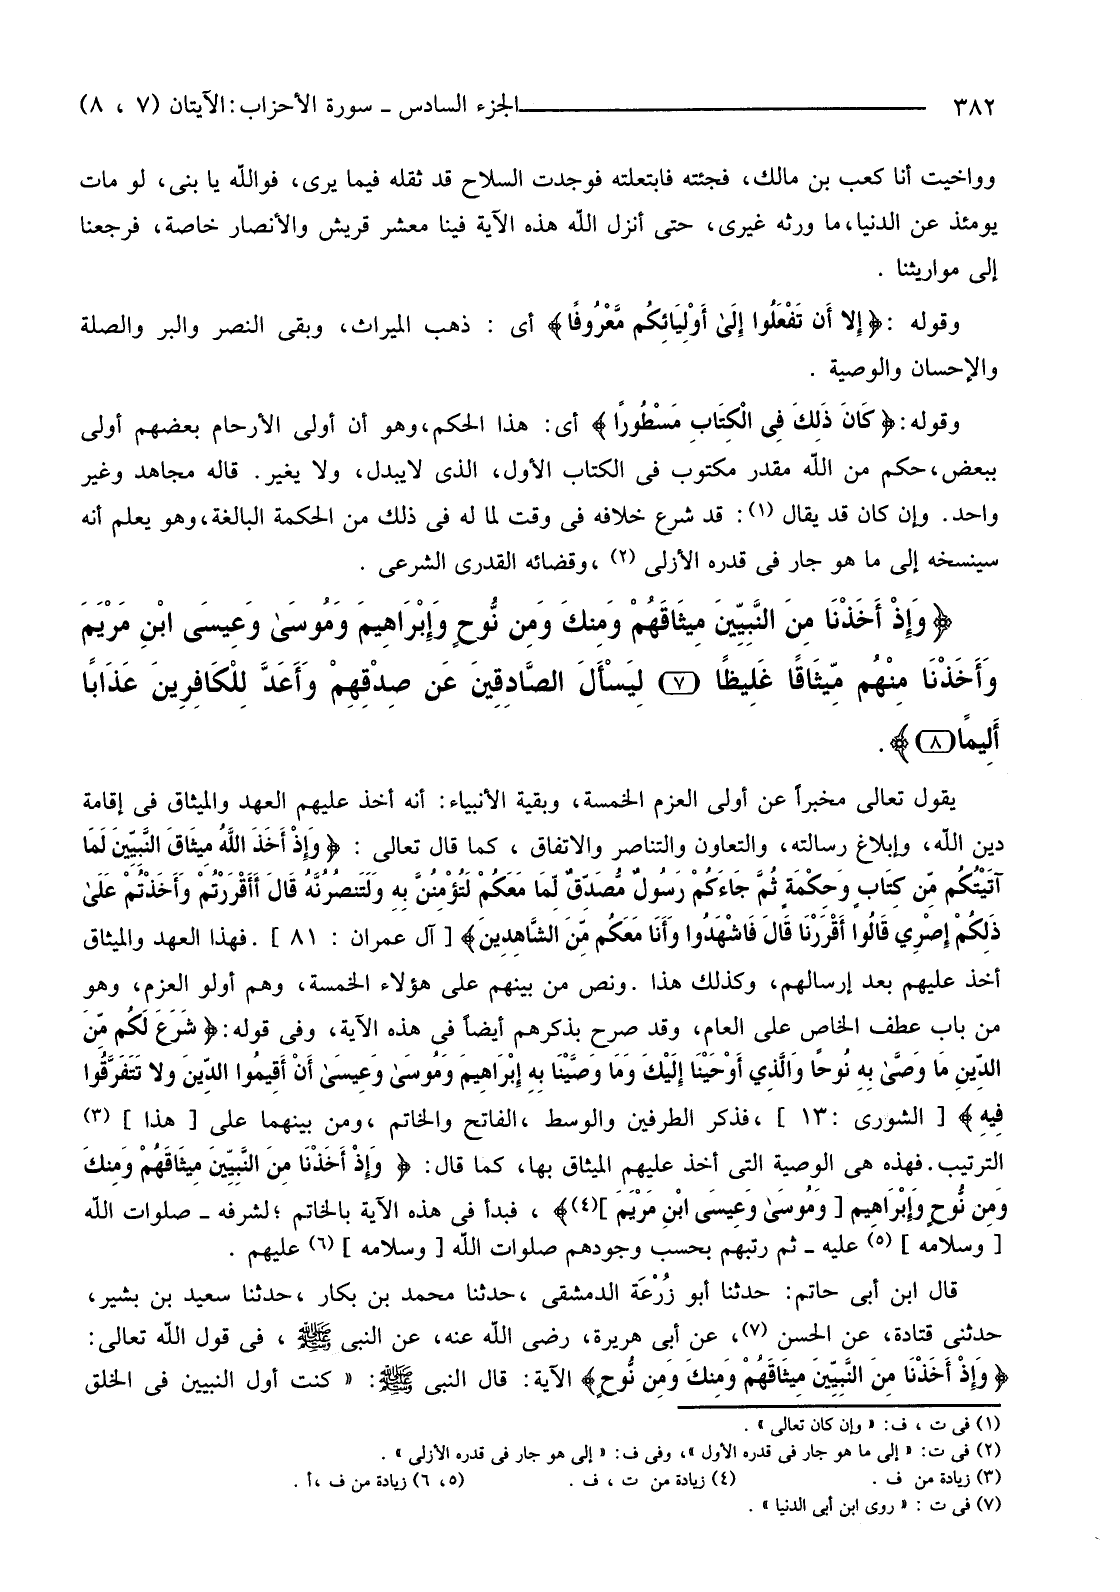 ٣٨٢ ــــــــــــــــــــــــــــــــــــ الجزء السادس ـ سورة الأحزاب : الآيتان (٧ ، ٨)
وواخيت أنا كعب بن مالك، فجئته فابتعلته فوجدت السلاح قد ثقله فيما يرى، فوالله يا بنى، لو مات
يومئذ عن الدنيا، ما ورثه غيرى، حتى أنزل الله هذه الآية فينا معشر قريش والأنصار خاصة، فرجعنا
إلى مواريثنا .
وقوله : ﴿ إِلا أَن تَفْعَلُوا إِلَىٰ أَوْلِيَائِكُم مَّعْرُوفًا ﴾ أى : ذهب الميراث، وبقى النصر والبر والصلة
والإحسان والوصية .
وقوله: ﴿ كَانَ ذَلِكَ فِي الْكِتَابِ مَسْطُورًا ﴾ أى: هذا الحكم، وهو أن أولى الأرحام بعضهم أولى
ببعض، حكم من الله مقدر مكتوب فى الكتاب الأول، الذى لايبدل، ولا يغير. قاله مجاهد وغير
واحد. وإن كان قد يقال (١): قد شرع خلافه فى وقت لما له فى ذلك من الحكمة البالغة، وهو يعلم أنه
سينسخه إلى ما هو جار فى قدره الأزلى (٢) ، وقضائه القدرى الشرعى .
﴿ وَإِذْ أَخَذْنَا مِنَ النَّبِيِّينَ مِيثَاقَهُمْ وَمِنكَ وَمِن نُّوحٍ وَإِبْرَاهِيمَ وَمُوسَىٰ وَعِيسَى ابْنِ مَرْيَمَ
وَأَخَذْنَا مِنْهُم مِّيثَاقًا غَلِيظًا (٧) لِيَسْأَلَ الصَّادِقِينَ عَن صِدْقِهِمْ وَأَعَدَّ لِلْكَافِرِينَ عَذَابًا
أَلِيمًا (٨) ﴾ .
يقول تعالى مخبراً عن أولى العزم الخمسة، وبقية الأنبياء: أنه أخذ عليهم العهد والميثاق فى إقامة
دين الله، وإبلاغ رسالته، والتعاون والتناصر والاتفاق ، كما قال تعالى : ﴿ وَإِذْ أَخَذَ اللَّهُ مِيثَاقَ النَّبِيِّينَ لَمَا
آتَيْتُكُم مِّن كِتَابٍ وَحِكْمَةٍ ثُمَّ جَاءَكُمْ رَسُولٌ مُّصَدِّقٌ لِّمَا مَعَكُمْ لَتُؤْمِنُنَّ بِهِ وَلَتَنصُرُنَّهُ قَالَ أَأَقْرَرْتُمْ وَأَخَذْتُمْ عَلَىٰ
ذَلِكُمْ إِصْرِي قَالُوا أَقْرَرْنَا قَالَ فَاشْهَدُوا وَأَنَا مَعَكُم مِّنَ الشَّاهِدِينَ ﴾ [ آل عمران : ٨١ ] . فهذا العهد والميثاق
أخذ عليهم بعد إرسالهم، وكذلك هذا . ونص من بينهم على هؤلاء الخمسة، وهم أولو العزم، وهو
من باب عطف الخاص على العام، وقد صرح بذكرهم أيضاً فى هذه الآية، وفى قوله: ﴿ شَرَعَ لَكُم مِّنَ
الدِّينِ مَا وَصَّىٰ بِهِ نُوحًا وَالَّذِي أَوْحَيْنَا إِلَيْكَ وَمَا وَصَّيْنَا بِهِ إِبْرَاهِيمَ وَمُوسَىٰ وَعِيسَىٰ أَنْ أَقِيمُوا الدِّينَ وَلا تَتَفَرَّقُوا
فِيهِ ﴾ [ الشورى : ١٣ ] ، فذكر الطرفين والوسط ، الفاتح والخاتم ، ومن بينهما على [ هذا ] (٣)
الترتيب. فهذه هى الوصية التى أخذ عليهم الميثاق بها، كما قال: ﴿ وَإِذْ أَخَذْنَا مِنَ النَّبِيِّينَ مِيثَاقَهُمْ وَمِنكَ
وَمِن نُّوحٍ وَإِبْرَاهِيم [ وَمُوسَىٰ وَعِيسَى ابْنِ مَرْيَمَ ](٤) ﴾ ، فبدأ فى هذه الآية بالخاتم ؛ لشرفه ـ صلوات الله
[ وسلامه ] (٥) عليه ـ ثم رتبهم بحسب وجودهم صلوات الله [ وسلامه ] (٦) عليهم .
قال ابن أبى حاتم: حدثنا أبو زُرْعَة الدمشقى ، حدثنا محمد بن بكار ، حدثنا سعيد بن بشير،
حدثنى قتادة، عن الحسن (٧)، عن أبى هريرة، رضى الله عنه، عن النبى ﷺ ، فى قول الله تعالى:
﴿ وَإِذْ أَخَذْنَا مِنَ النَّبِيِّينَ مِيثَاقَهُمْ وَمِنكَ وَمِن نُّوحٍ ﴾ الآية: قال النبى ﷺ: « كنت أول النبيين فى الخلق
(١) فى ت ، ف: « وإن كان تعالى » .
(٢) فى ت: « إلى ما هو جار فى قدره الأول »، وفى ف: « إلى هو جار فى قدره الأزلى » .
(٣) زيادة من ف . (٤) زيادة من ت ، ف . (٥، ٦) زيادة من ف ، أ .
(٧) فى ت : « روى ابن أبى الدنيا » .